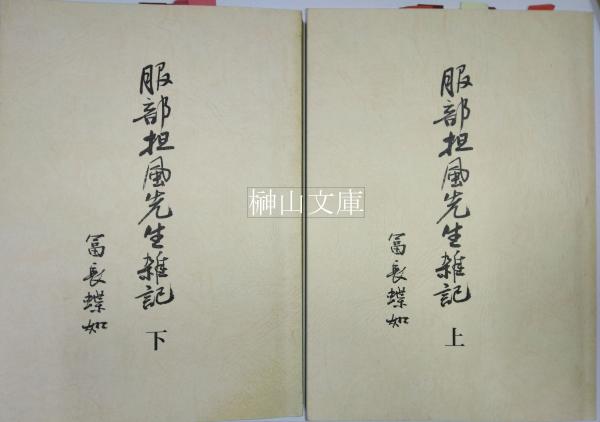 服部担風先生雑記
冨長蝶如
上
服部担風先生雑記
冨長蝶如
下
榊山文庫